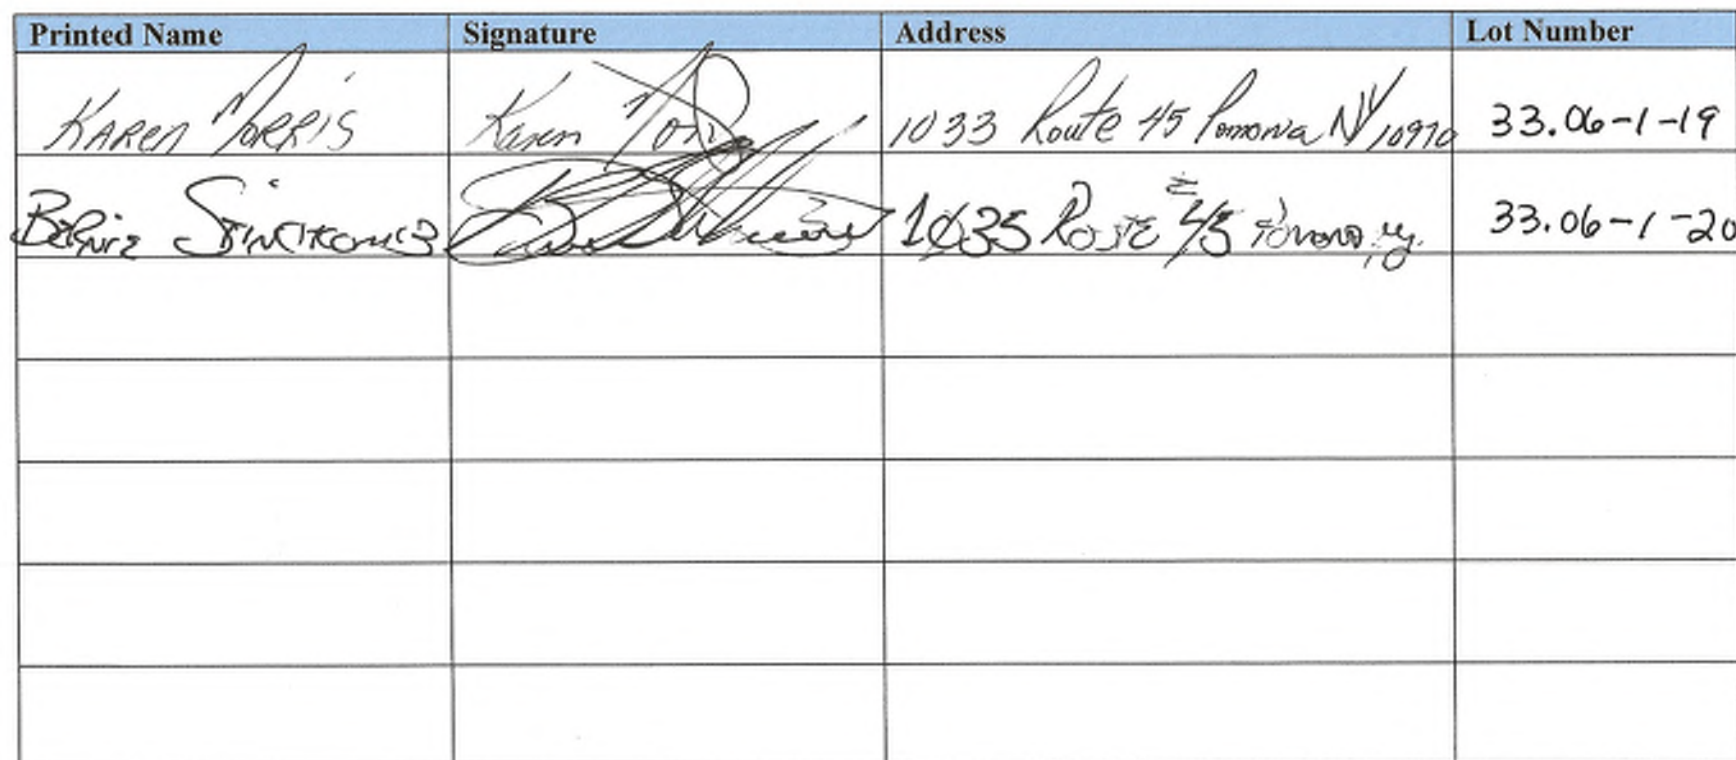 Printed Name Signature Address Lot Number
Karen Morris Karen 1033 Route 45 Pomona NY 10970 33.06-1-19
1035 Route 45 Pomona, ny. 33.06-1-20